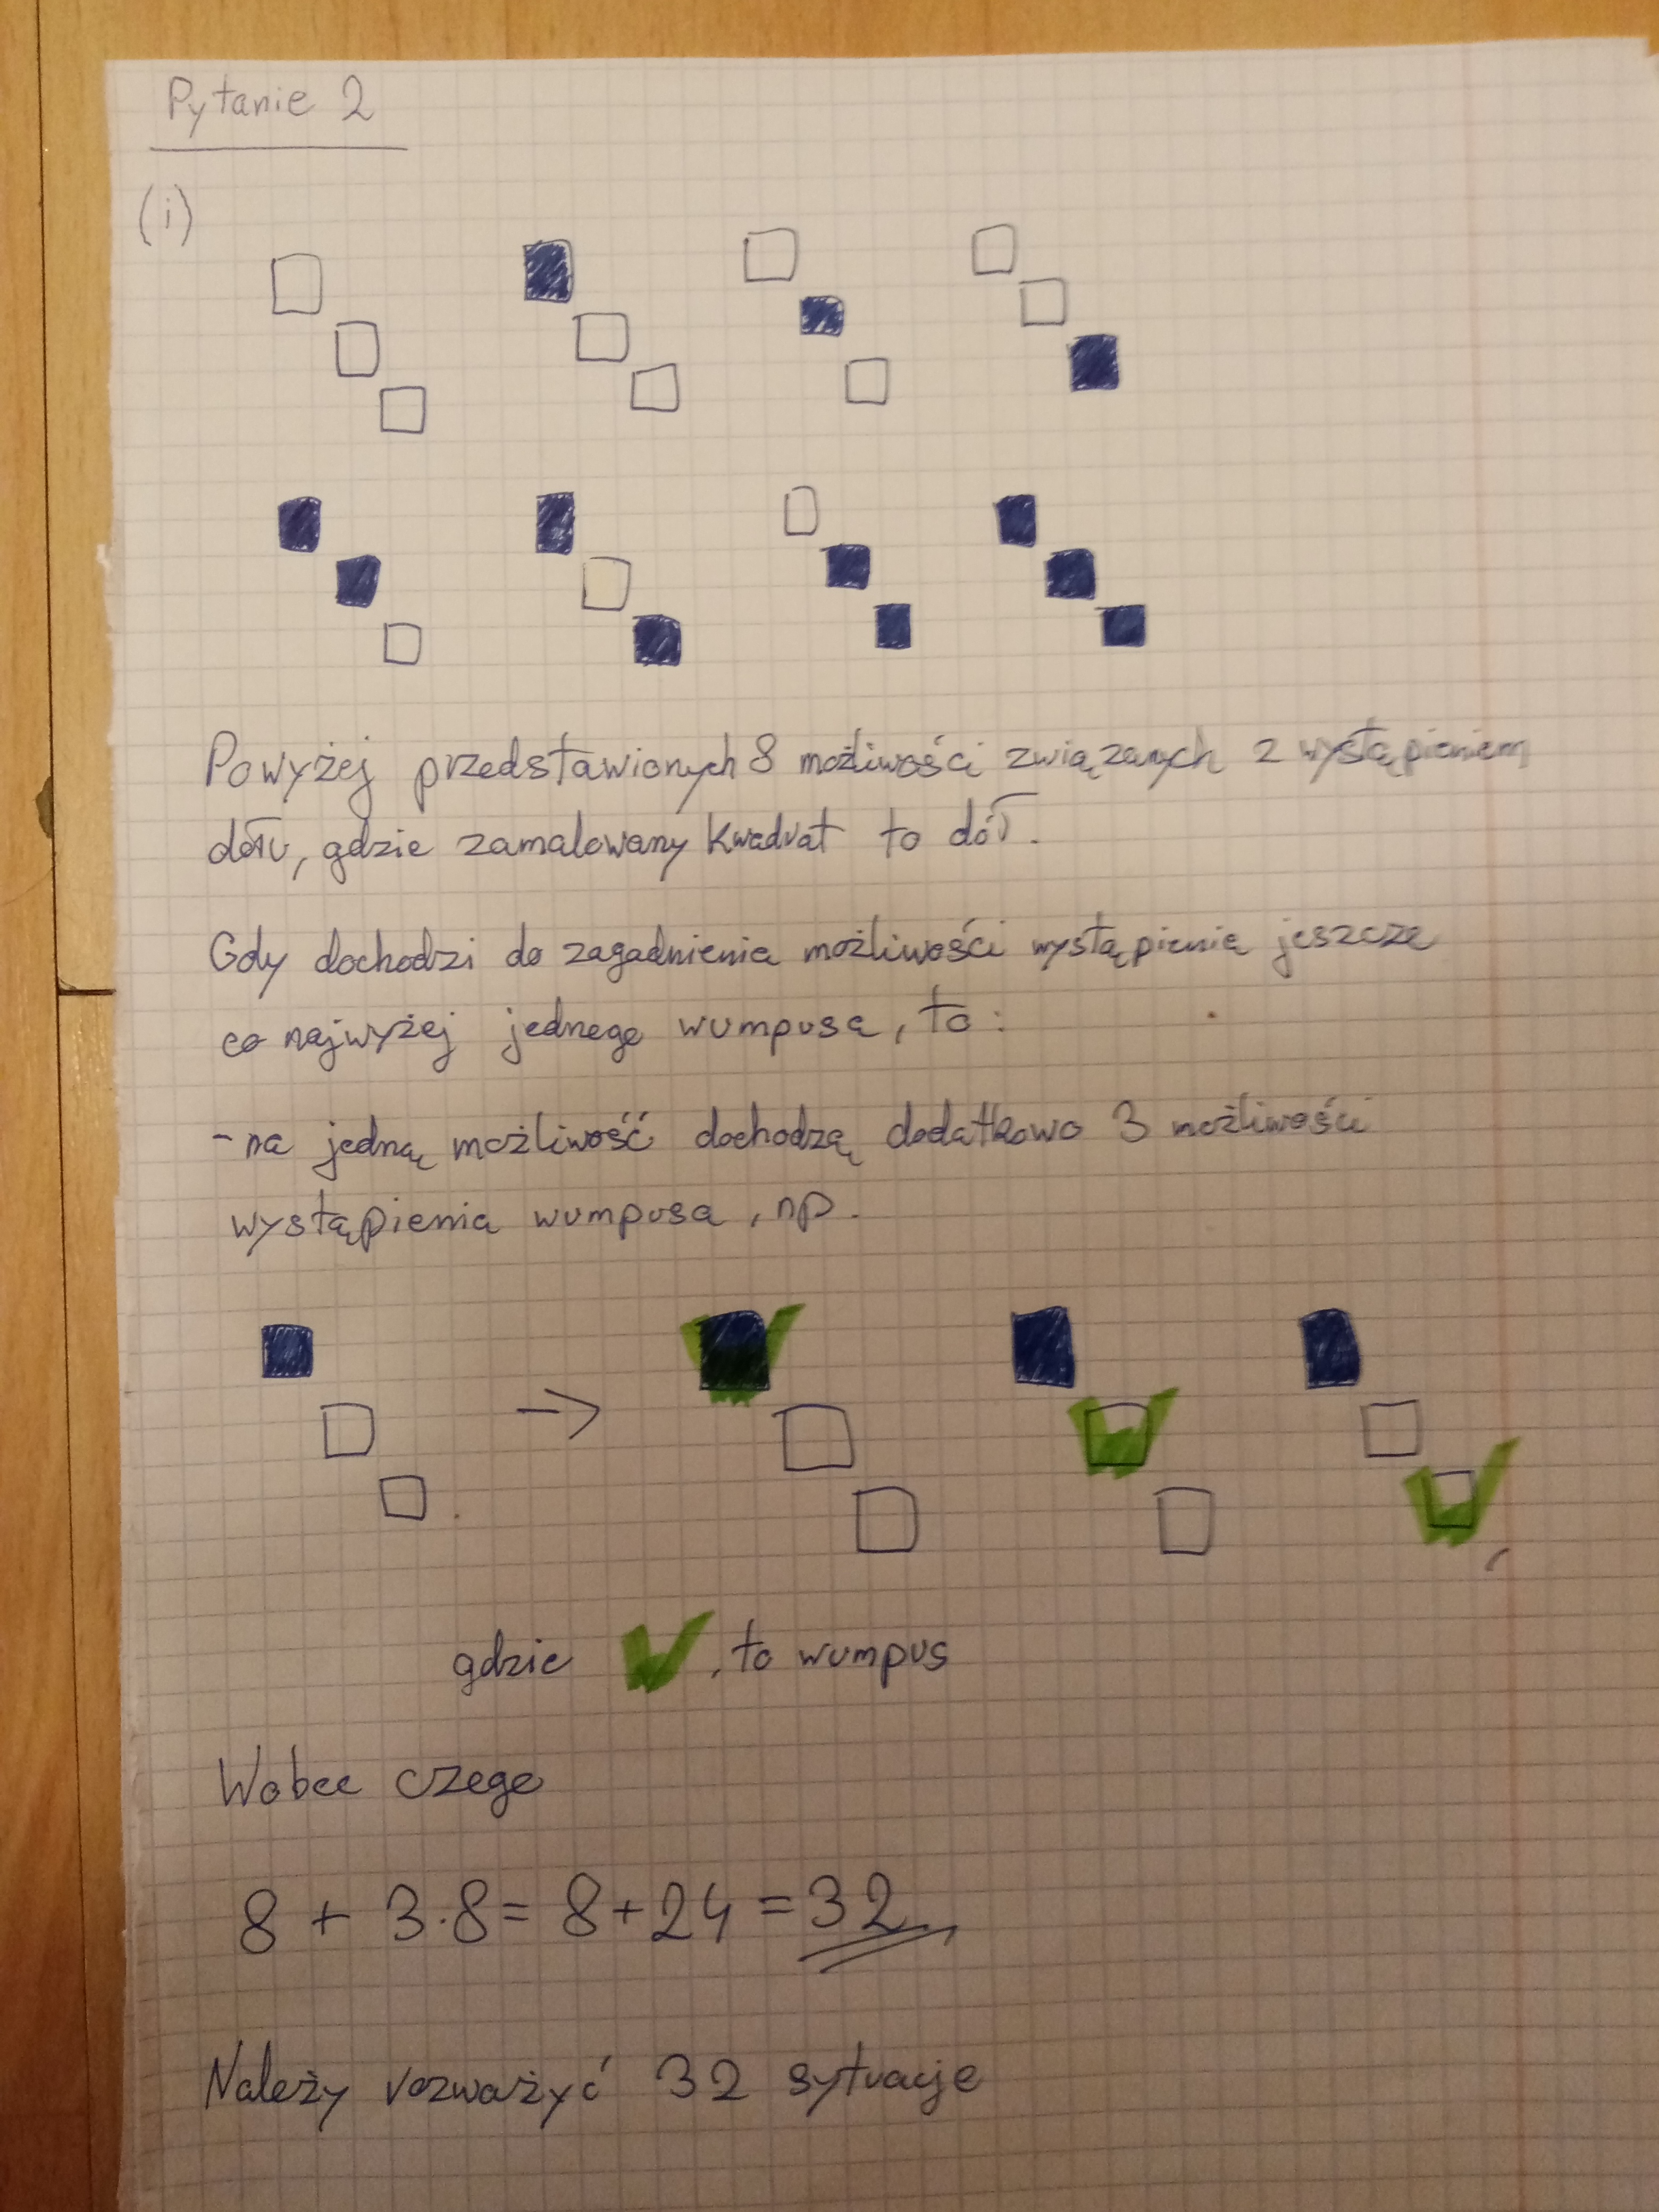 Pytanie 2
(i)
Powyżej przedstawionych 8 możliwości związanych z wystąpieniem
dołu, gdzie zamalowany kwadrat to dół.
Gdy dochodzi do zagadnienia możliwości wystąpienia jeszcze
co najwyżej jednego wumpusa, to:
- na jedną możliwość dochodzą dodatkowo 3 możliwości
wystąpienia wumpusa, np.
→
gdzie , to wumpus
Wobec czego
8 + 3·8 = 8 + 24 = 32
Należy rozważyć 32 sytuacje